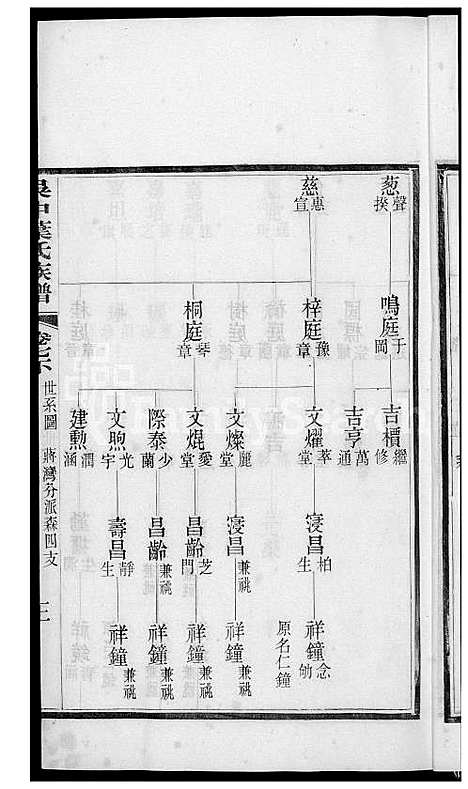 葱 聲揆
鳴庭 于岡
吉櫝 繼修
吉亨 萬通
慈 惠宣
梓庭 豫章
文燿 莘堂
寖昌 柏生
祥鐘 念劬
原名仁鐘
文燦 麗堂
寖昌 兼祧
祥鐘 兼祧
桐庭 琴章
文焜 愛堂
昌齡 芝門
祥鐘 兼祧
際泰 少蘭
昌齡 兼祧
祥鐘 兼祧
文煦 光宇
壽昌 靜生
祥鐘 兼祧
建勲 潤涵
吳中葉氏族譜
卷七下
世系圖 蔣灣分派森四支